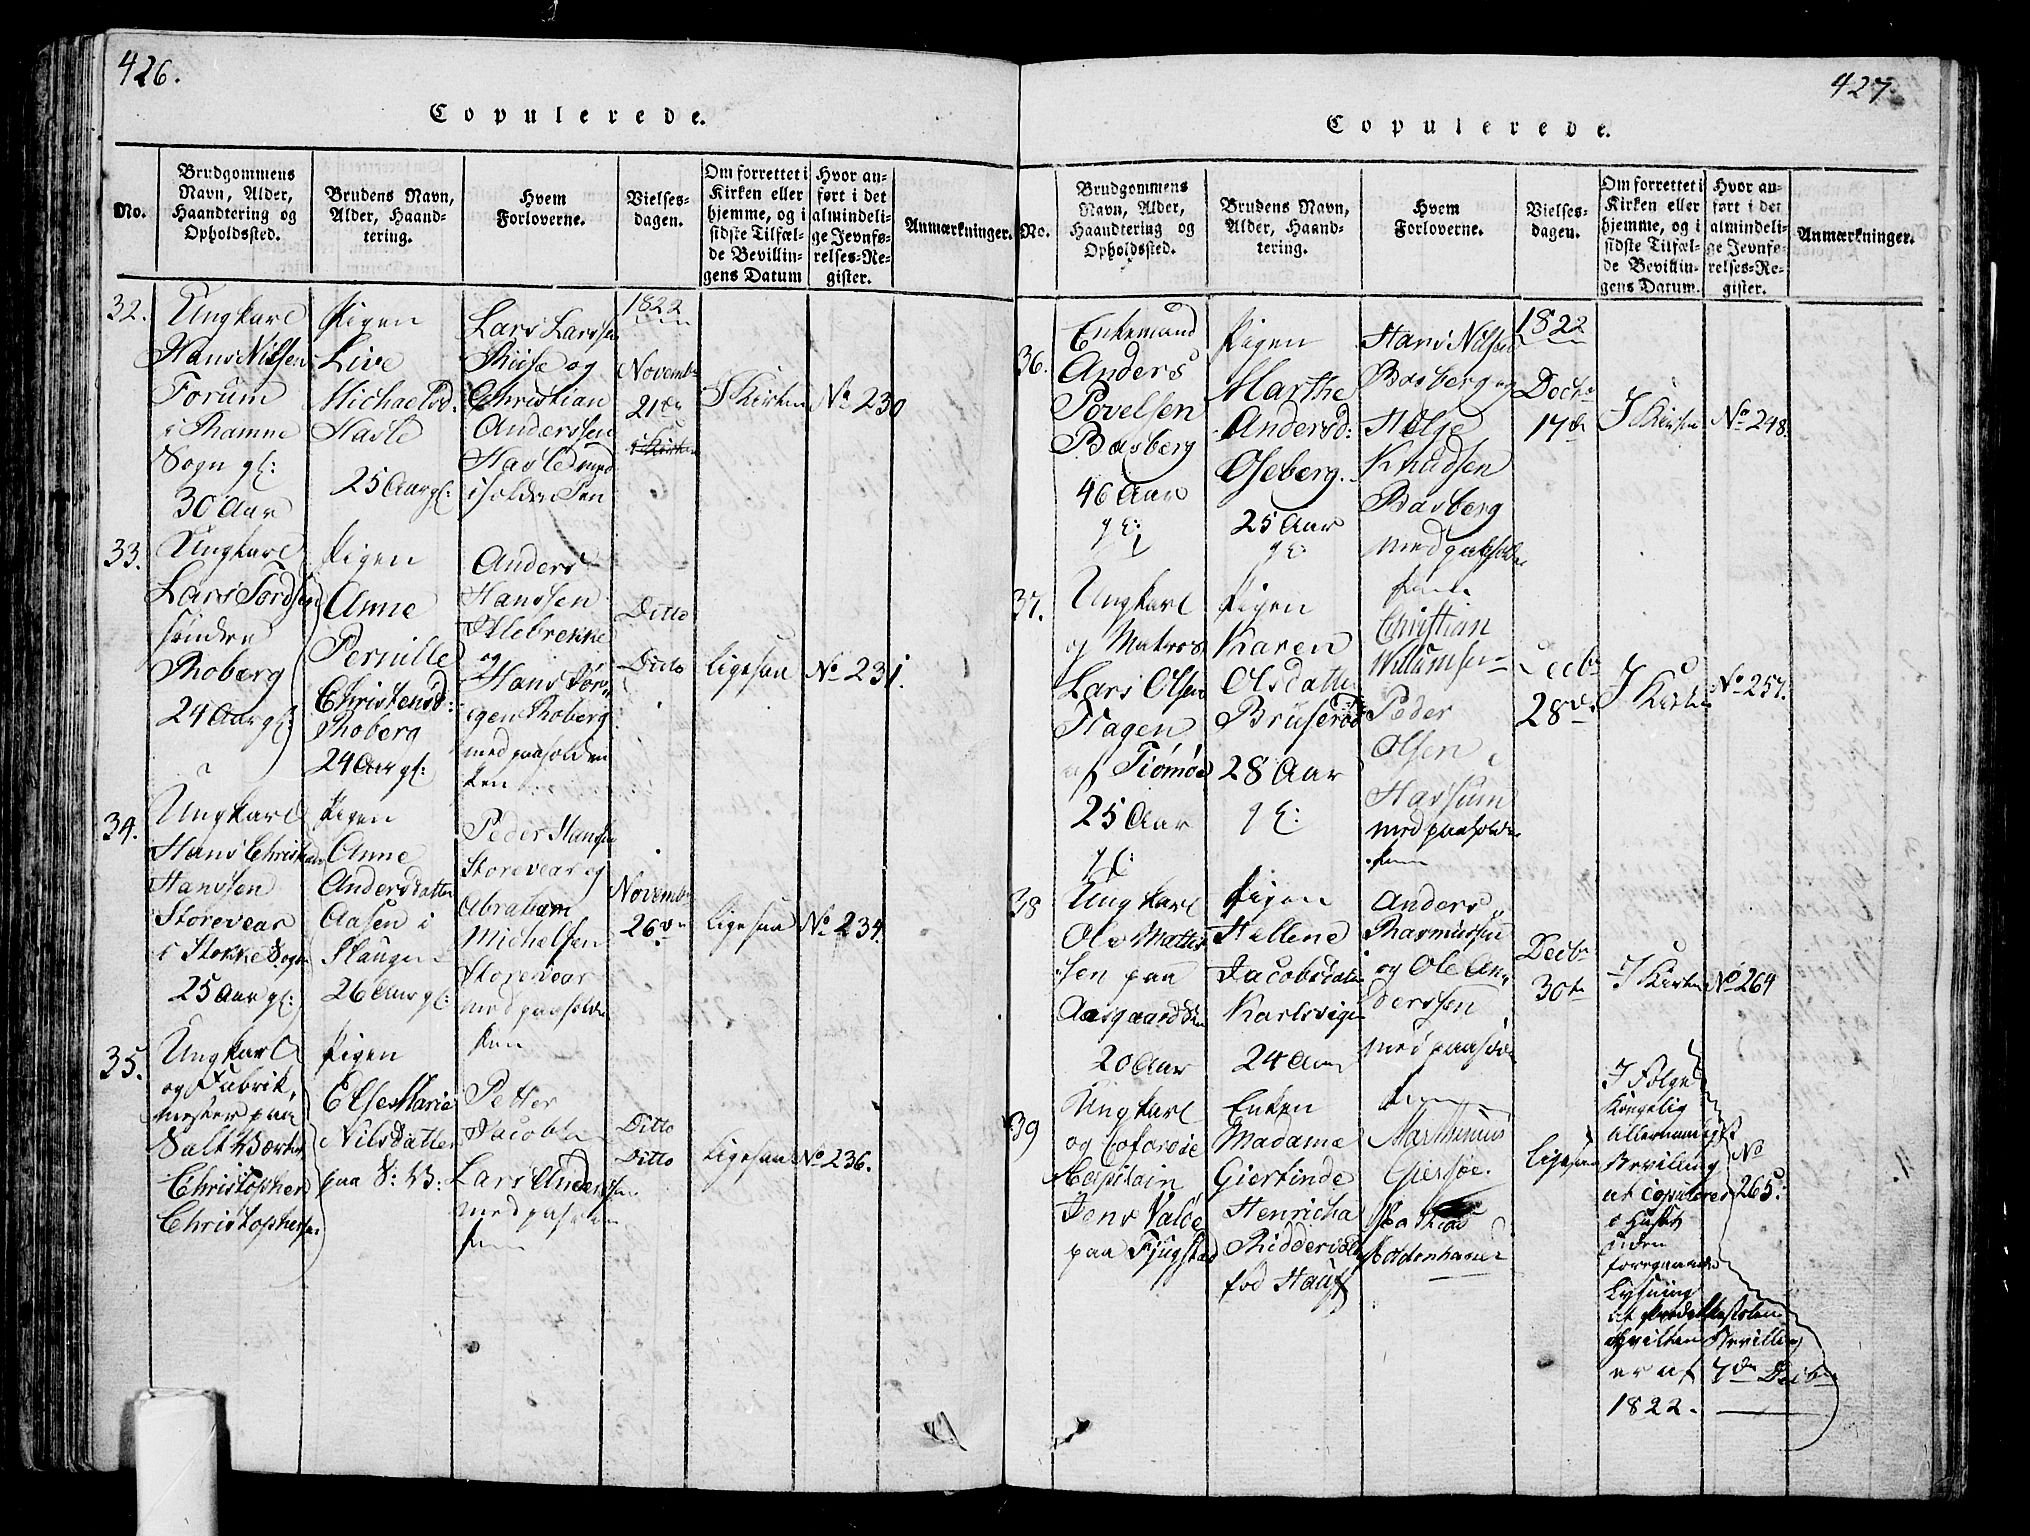 426.
Copulerede.
No.
Brudgommens
Navn, Alder,
Haandtering og
Opholdssted.
Brudens Navn,
Alder, Haand-
tering.
Hvem
Forloverne.
Vielses-
dagen.
Om forrettet i
Kirken eller
hjemme, og i
sidste Tilfæl-
de Bevillin-
gens Datum
Hvor an-
ført i det
almindeli-
ge Jevnfø-
relses-Re-
gister.
Anmærkninger.
32.
Ungkarl
Hans Nilsen
Forum
i Ramne
Sogn gl:
30 Aar
Pigen
Live
Michaelsd:
Hasle
25 Aar gl:
Lars Larssen
Riise og
Christian
Anderssen
Hasle
1822
Novembr
21de
i Kirken
I Kirken
No 230
33.
Ungkarl
Lars Tordsen
søndre
Roberg
24 Aar gl:
Pigen
Anne
Pernille
Christensd:
Roberg
24 Aar gl:
Anders
Hanssen
og
Hans Jør-
gen Roberg
Ditto
Ditto
ligesaa
No 231.
34.
Ungkarl
Hans Christian
Hanssen
Storevear
i Stokke Sogn
25 Aar gl:
Pigen
Anne
Andersdatter
Aasen i
Slaugen
26 Aar gl:
Peder Hansen
Storevear og
Abraham
Michelsen
Storevear
Novembr
26de
ligesaa
No 234.
35.
Ungkarl
og Fabrik,
mester paa
Salt Værket
Christopher
Christophersen
Pigen
Else Marie
Nilsdatter
paa S: V:
Petter
Jacobsen
Lars Anderssen
Ditto
Ditto
ligesaa
No 236.
427.
Copulerede.
No.
Brudgommens
Navn, Alder,
Haandtering og
Opholdssted.
Brudens Navn,
Alder, Haand-
tering.
Hvem
Forloverne.
Vielses-
dagen.
Om forrettet i
Kirken eller
hjemme, og i
sidste Tilfæl-
de Bevillin-
gens Datum.
Hvor an-
ført i det
almindeli-
ge Jevnfø-
relses-Re-
gister.
Anmærkninger.
36.
Enkemand
Anders
Povelsen
Basberg
46 Aar
gl:
Pigen
Marthe
Andersd:
Oseberg.
25 Aar
gl:
Hans Nilsen
Basberg og
Helge
Knudsen
Basberg
1822
Decbr
17de
I Kirken
No 248.
37.
Ungkarl
og Matros
Lars Olsen
Hagen
af Tiømøe
25 Aar
gl:
Pigen
Karen
Olsdatter
Bruserød
28 Aar
gl:
Christian
Willumsen
Peder
Olsen
Decbr
28de
I Kirken
No 257.
38
Ungkarl
Ole Mathis-
sen paa
Aasgaarden
20 Aar
Pigen
Hellene
Jacobsdatter
Karlsvigen
24 Aar
Anders
Rasmussen
og Ole An-
derssen
Decbr
30te
I Kirken
No 264
39
Ungkarl
og
Capitain
Jens Valøe
paa Fjugstad
Enken
Madame
Giertinde
Henricha
fød
Marthinius
Giersøe.
Ligesaa
I Følge
Kongelig
Allernaadigst
Bevilling
at copuleres
i Huset
uden
foregaaende
Lysning
af Prædikestolen
hvilken Bevilling
er af 7de Decbr
1822.
No
265.